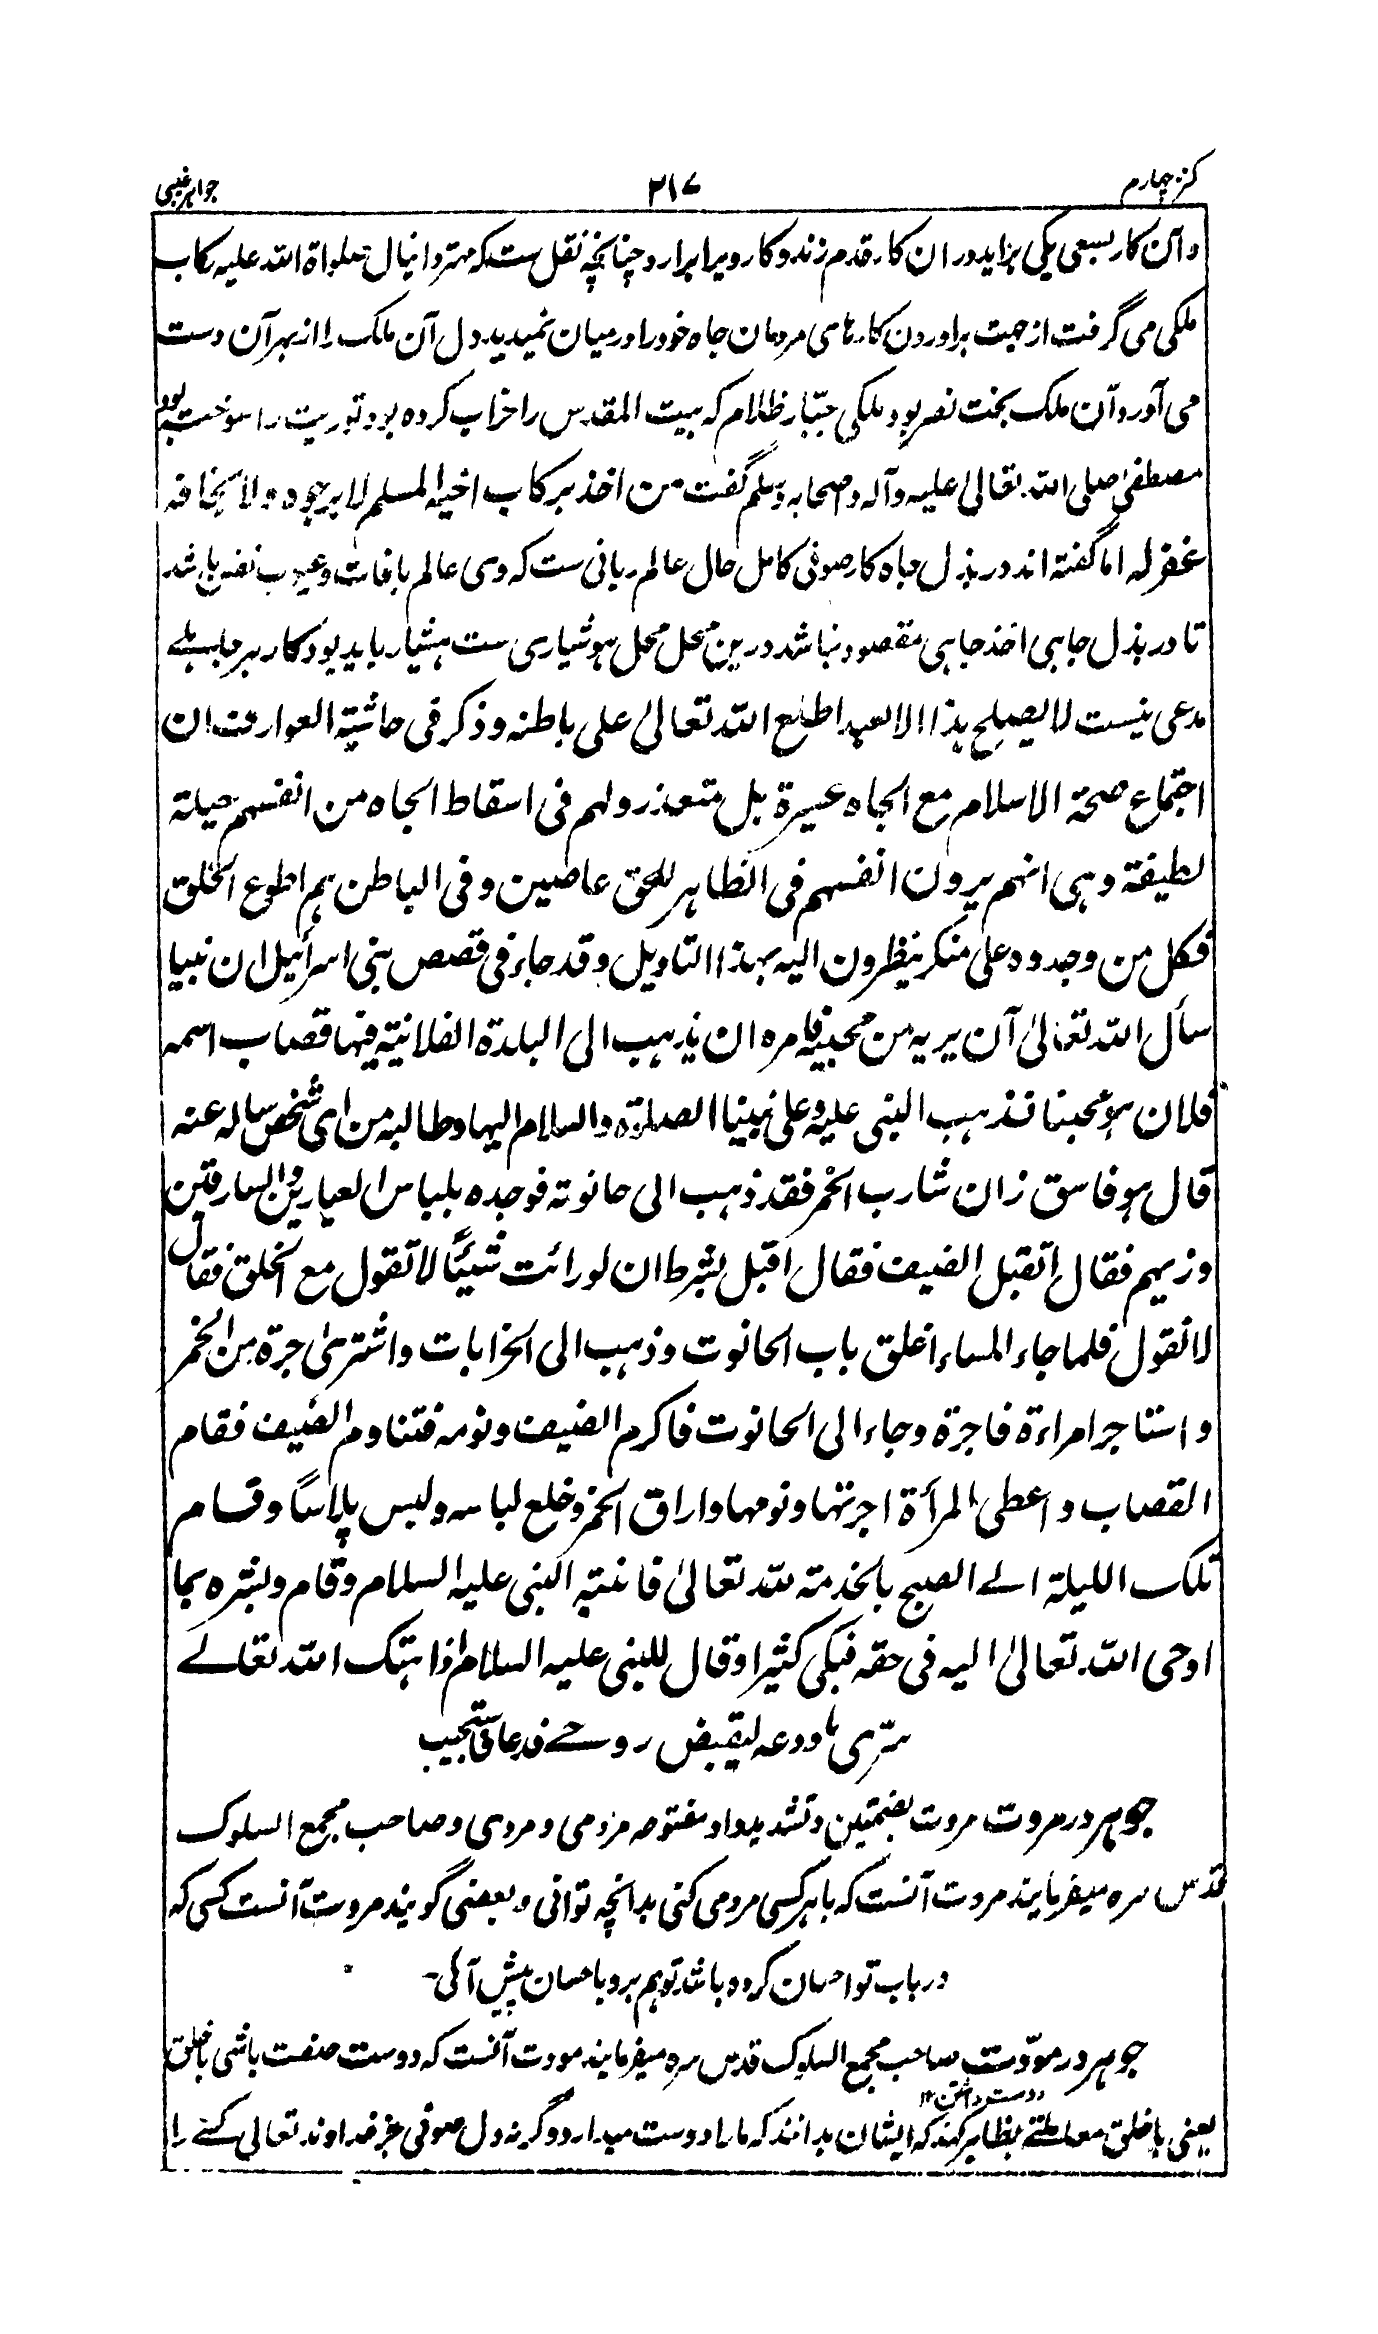 کنز چهارم ۲۱۷ جواهر غیبی
و آن کار بسعی یکی برآید در ان کار قدم زند و کار ویرا برارد چنانچه نقل ست که مهتر دانیال صلواة الله علیه رکاب
ملکی می گرفت از جهت براوردن کارهای مردمان جاه خود را درمیان نمیدید دل آن ملک را از بهر آن دست
می آورد و آن ملک بخت نصر بود ملکی جبّار ظلام که بیت المقدس را خراب کرده بود و توریت را سوخته بود
مصطفی صلی الله تعالیٰ علیه وآله و اصحابه وسلم گفت من اخذ برکاب اخیه المسلم لا یرجوه ولا یخافه
غفر له اما گفته اند در بذل جاه کار صوفی کامل حال عالم ربانی ست که وی عالم بافات وعیوب نفس باشد
تا در بذل جاهی اخذ جاهی مقصود نباشد درین محل محل هوشیاری ست هشیار باید بود کار هر جاهلے
مدعی نیست لا یصلح هذا الا لعبد اطلع الله تعالیٰ علی باطنه وذکر فی حاشیة العوارف ان
اجتماع صحة الاسلام مع الجاه عسیرة بل متعذر ولهم فی اسقاط الجاه من انفسهم حیلة
لطیفة وهی انهم یرون انفسهم فی الظاهر للحق عاصین وفی الباطن هم اطوع الخلق
فکل من وجدوه علی منکر ینظرون الیه بهذا التاویل وقد جاء فی قصص بنی اسرائیل ان نبیا
سأل الله تعالیٰ آن یریه من محبیه فامره ان یذهب الی البلدة الفلانیة فیها قصاب اسمه
فلان هو محبنا فذهب النبی علیه وعلی نبینا الصلوة والسلام الیها وطالبه من ای شخص ساله عنه
قال هو فاسق زان شارب الخمر فقد ذهب الی حانوته فوجده بلباس العیارین والسارقین
وزیهم فقال اتقبل الضیف فقال اقبل بشرط ان لو رائت شیئًا لا تقول مع الخلق فقال
لا نقول فلما جاء المساء اغلق باب الحانوت وذهب الی الخرابات واشتریٰ جرة من الخمر
و استاجر امراءة فاجرة وجاء الی الحانوت فاکرم الضیف ونومه فتناوم الضیف فقام
القصاب و اعطی المرأة اجرتها ونومها واراق الخمر وخلع لباسه ولبس پلاسًا وقام
تلک اللیلة الے الصبح بالخدمة لله تعالیٰ فانتبه النبی علیه السلام وقام وبشره بما
اوحی الله تعالیٰ الیه فی حقه فبکی کثیرا وقال للنبی علیه السلام اذا هتک الله تعالے
سرّی فادعه لیقبض روحے فدعا فاستجیب
جوهر در مروت مروت بضمتین وتشدید واو مفتوحه مردمی و مردی و صاحب مجمع السلوک
قدس سره میفرمایند مروت آنست که باهرکسی مردمی کنی بدانچه توانی و بعضی گویند مروت آنست کسی که
در باب تو احسان کرده باشد تو هم برو باحسان پیش آئی۔
جوهر در مودّت صاحب مجمع السلوک قدس سره میفرمایند مودت آنست که دوست صفت باشی با خلق
دوست داشتن ۱۲
یعنی با خلق معاملتے بظاهر کند که ایشان بدانند که مارا دوست میدارد وگرنه دل صوفی جز خداوند تعالی کسے را